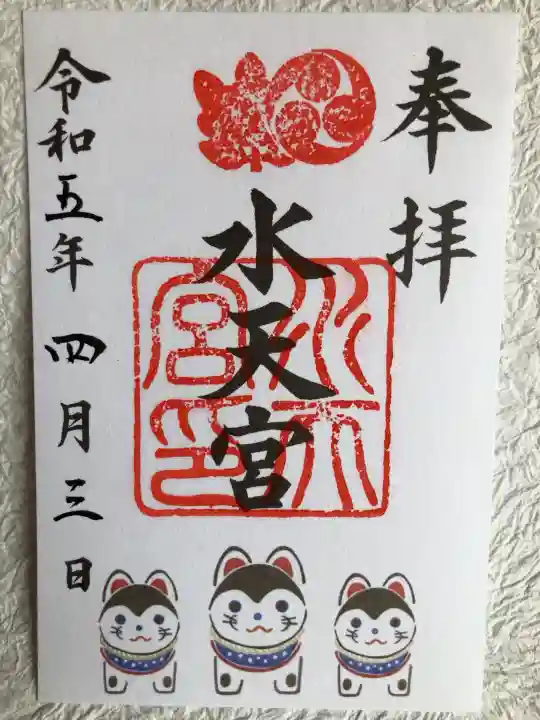 奉拝
水天宮
水天宮印
令和五年四月三日